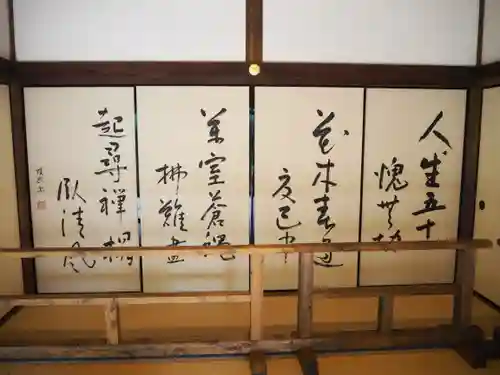 人生五十
愧無功
花木春過
夏已中
満室蒼蠅
掃難盡
起尋禪榻
臥清風